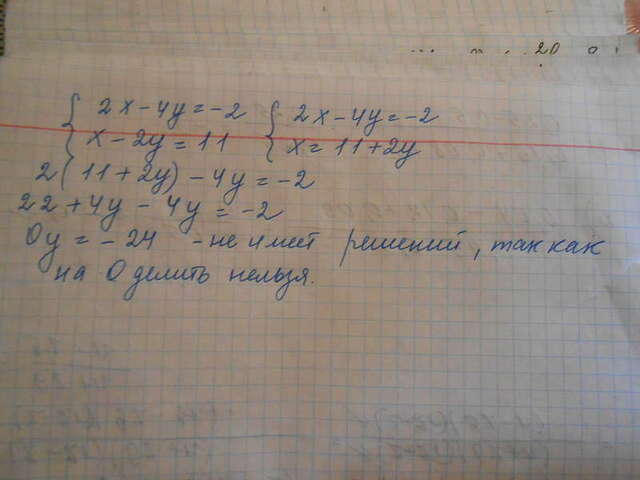 { 2x-4y=-2 { 2x-4y=-2
x-2y=11 x=11+2y
2(11+2y)-4y=-2
22+4y-4y=-2
0y=-24 -не имеет решений, так как
на 0 делить нельзя.
20